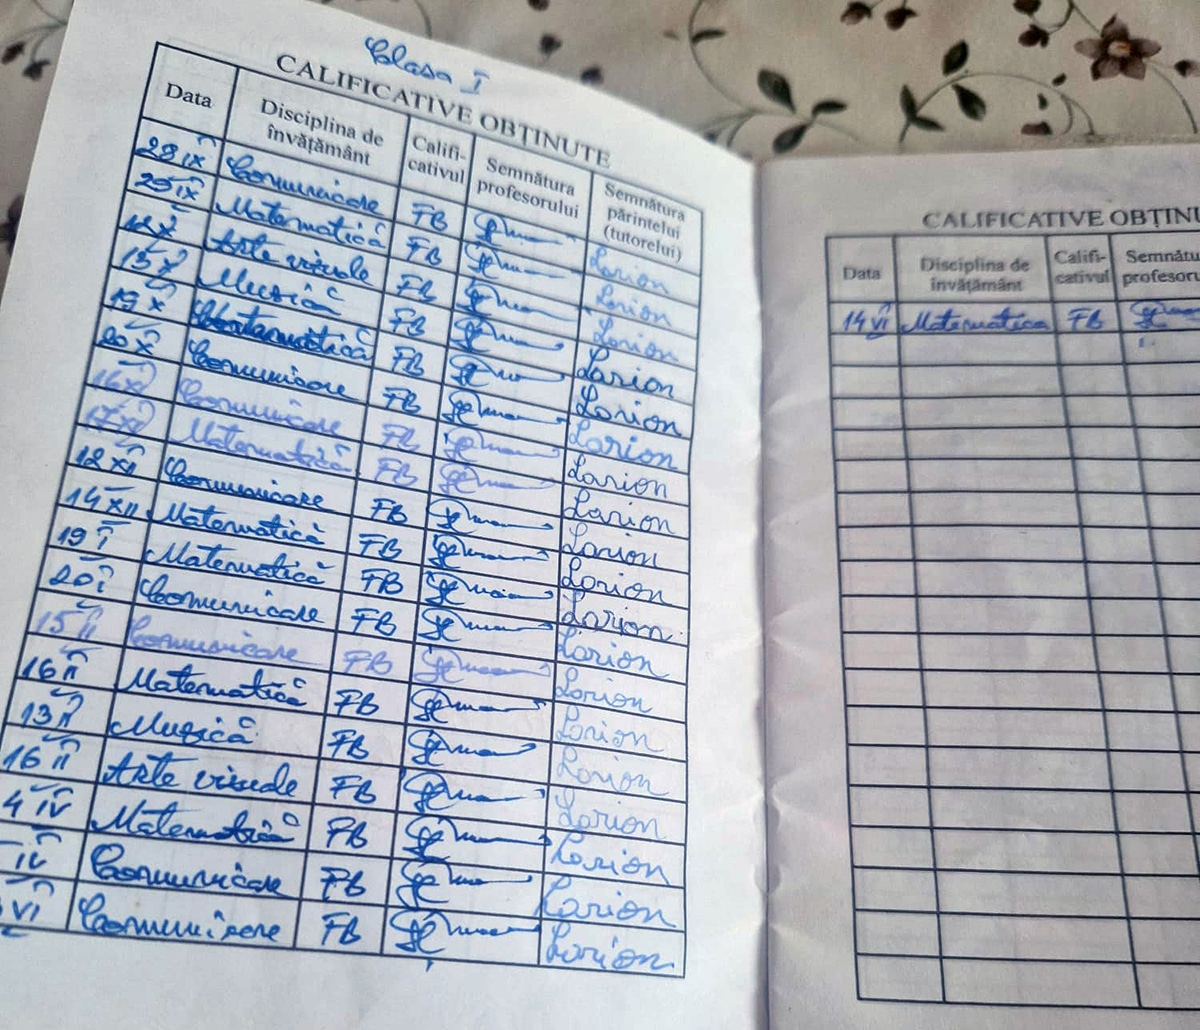 Clasa I
CALIFICATIVE OBȚINUTE
Data Disciplina de învățământ Califi-cativul Semnătura profesorului Semnătura părintelui (tutorelui)
28 IX Comunicare FB Larion
25 IX Matematică FB Larion
12 X Arte vizuale FB Larion
13 X Muzică FB Larion
19 X Matematică FB Larion
20 X Comunicare FB Larion
16 XI Comunicare FB Larion
17 XI Matematică FB Larion
12 XII Comunicare FB Larion
14 XII Matematică FB Larion
19 I Matematică FB Larion
20 I Comunicare FB Larion
15 II Comunicare FB Larion
16 II Matematică FB Larion
13 II Muzică FB Larion
16 II Arte vizuale FB Larion
4 IV Matematică FB Larion
IV Comunicare FB Larion
VI Comunicare FB Larion
CALIFICATIVE OBȚINU
Data Disciplina de învățământ Califi-cativul Semnătu profesoru
14 VI Matematica FB